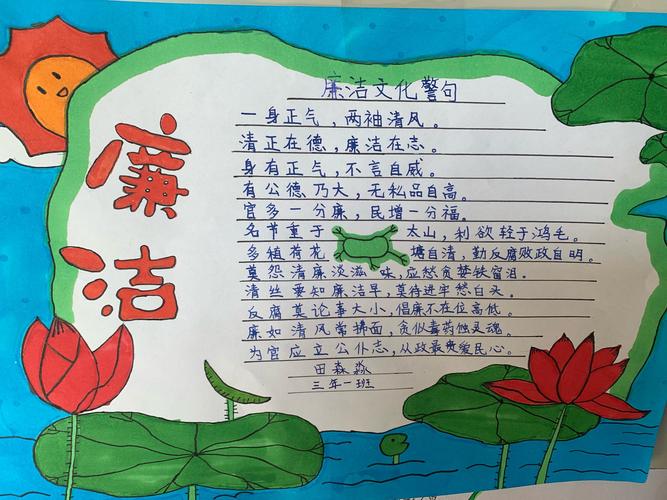 廉洁
廉洁文化警句
一身正气，两袖清风。
清正在德，廉洁在志。
身有正气，不言自威。
有公德乃大，无私品自高。
官多一分廉，民增一分福。
名节重于太山，利欲轻于鸿毛。
多植荷花塘自清，勤反腐败政自明。
莫怨清廉淡滋味，应愁贪婪铁留泪。
清丝要知廉洁早，莫待进牢愁白头。
反腐莫论事大小，倡廉不在位高低。
廉如清风常拂面，贪似毒药蚀灵魂。
为官应立公仆志，从政最贵爱民心。
田森淼
三年一班